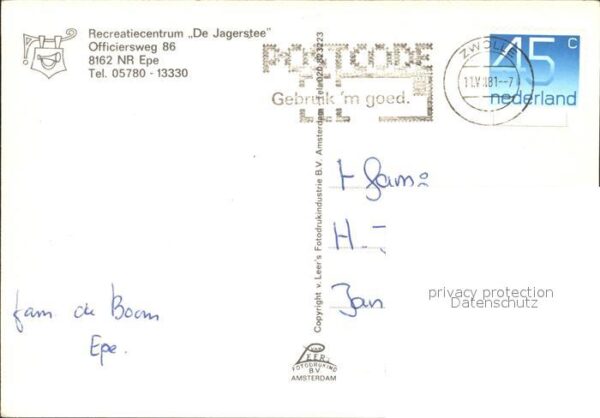 Recreatiecentrum „De Jagerstee"
Officiersweg 86
8162 NR Epe
Tel. 05780 - 13330
POSTCODE
Gebruik 'm goed.
ZWOLLE
45 c
nederland
Copyright v. Leer's Fotodrukindustrie B.V. Amsterdam
Fam.
H.
Jan
privacy protection
Datenschutz
fam de Boom
Epe.
VAN
LEER
FOTODRUKIND
B.V
AMSTERDAM